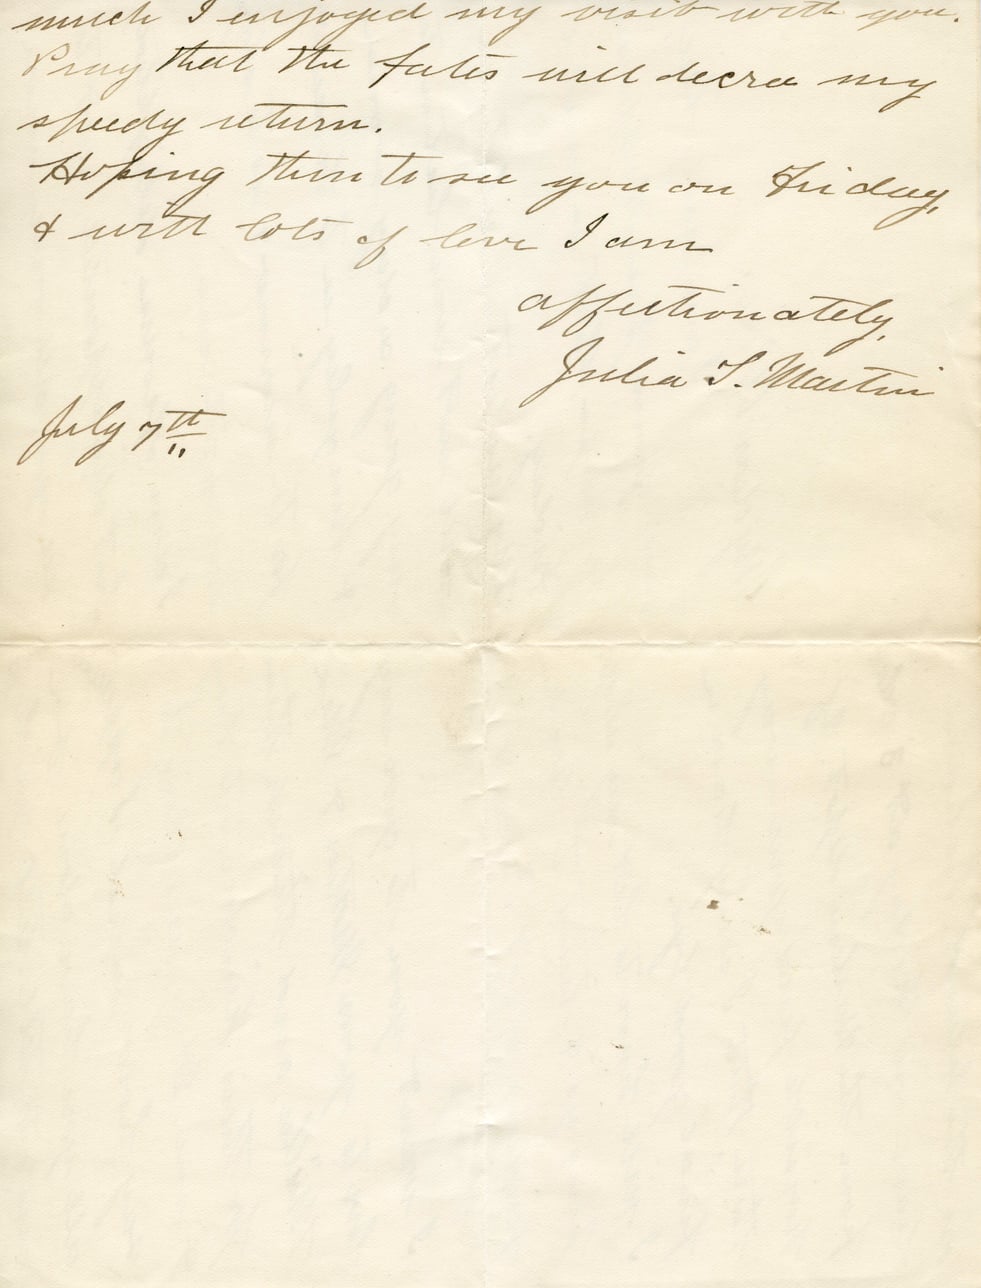 much I enjoyed my visit with you.
Pray that the fates will decree my
speedy return.
Hoping then to see you on Friday,
& with lots of love I am
affectionately,
Julia S. Martin
July 7th